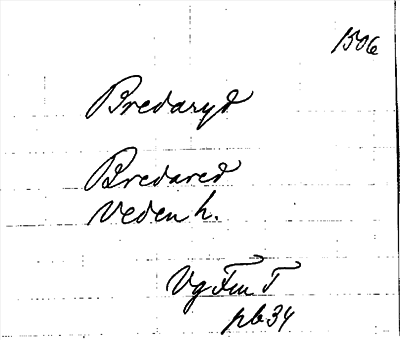 1506
Bredaryd
Bredared
Veden h.
Vg Fm T
pb 34